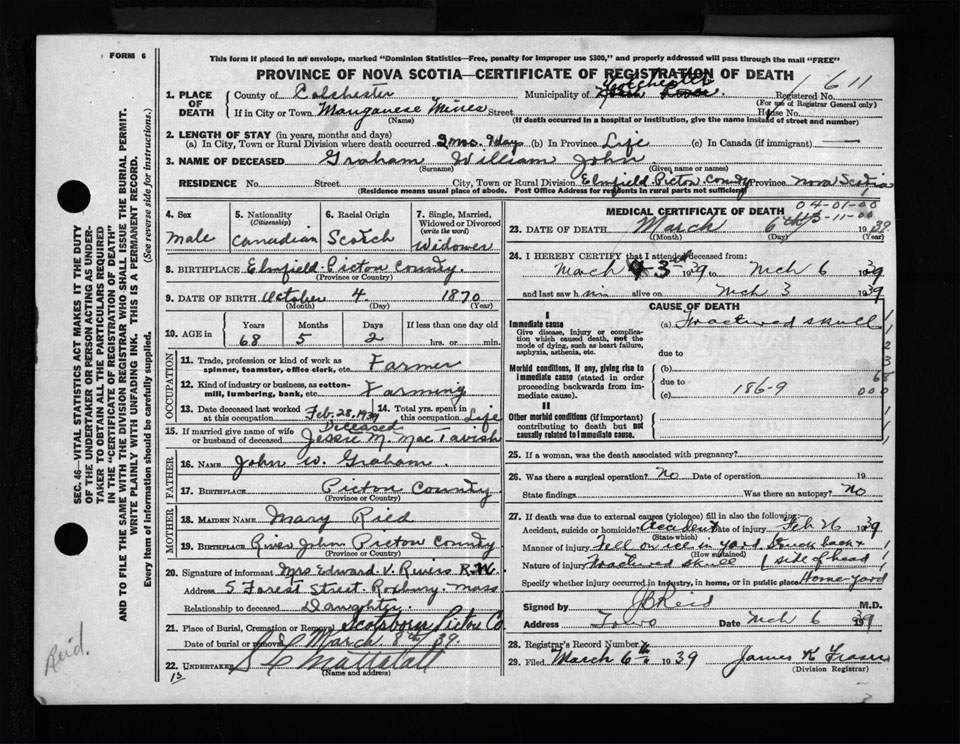 FORM 6
This form if placed in an envelope, marked "Dominion Statistics—Free, penalty for improper use $300," and properly addressed will pass through the mail "FREE"
PROVINCE OF NOVA SCOTIA—CERTIFICATE OF REGISTRATION OF DEATH
611
1. PLACE OF DEATH
County of Colchester Municipality of Colchester Registered No.
(For use of Registrar General only)
If in City or Town Manganese Mines Street House No.
(Name) (If death occurred in a hospital or institution, give the name instead of street and number)
2. LENGTH OF STAY (in years, months and days)
(a) In City, Town or Rural Division where death occurred 2 mo. 9 days (b) In Province Life (c) In Canada (if immigrant)
3. NAME OF DECEASED Graham William John
(Surname) (Given name or names)
RESIDENCE No. Street City, Town or Rural Division Elmfield Pictou County Province Nova Scotia
(Residence means usual place of abode. Post Office Address for residents in rural parts not sufficient)
4. Sex
male
5. Nationality
(Citizenship)
Canadian
6. Racial Origin
Scotch
7. Single, Married, Widowed or Divorced
(write the word)
Widower
8. BIRTHPLACE Elmfield Pictou County.
(Province or Country)
9. DATE OF BIRTH October 4 1870
(Month) (Day) (Year)
10. AGE in
Years Months Days If less than one day old
68 5 2 hrs. or min.
OCCUPATION
11. Trade, profession or kind of work as spinner, teamster, office clerk, etc. Farmer
12. Kind of industry or business, as cotton-mill, lumbering, bank, etc. Farming
13. Date deceased last worked at this occupation Feb. 28, 1939
14. Total yrs. spent in this occupation Life
15. If married give name of wife or husband of deceased Deceased
Jessie M. MacTavish
FATHER
16. NAME John W. Graham.
17. BIRTHPLACE Pictou County
(Province or Country)
MOTHER
18. MAIDEN NAME Mary Ried
19. BIRTHPLACE River John Pictou County
(Province or Country)
20. Signature of informant Mrs Edward V. Rivers R.N.
Address 5 Forest Street. Roxbury. Mass
Relationship to deceased Daughter.
21. Place of Burial, Cremation or Removal Scotsburn Pictou Co
Date of burial or removal March 8th /39.
22. UNDERTAKER
(Name and address)
MEDICAL CERTIFICATE OF DEATH
04-01-00
11-00
23. DATE OF DEATH March 6th 1939
(Month) (Day) (Year)
24. I HEREBY CERTIFY that I attended deceased from:
March 3 1939 to Mch 6 1939
and last saw him alive on Mch 3 1939
CAUSE OF DEATH
I
Immediate cause
Give disease, injury or complication which caused death, not the mode of dying, such as heart failure, asphyxia, asthenia, etc.
(a) Fractured skull
due to
Morbid conditions, if any, giving rise to immediate cause (stated in order proceeding backwards from immediate cause).
(b)
due to
(c) 186-9
II
Other morbid conditions (if important) contributing to death but not causally related to immediate cause.
25. If a woman, was the death associated with pregnancy?
26. Was there a surgical operation? No Date of operation 19
State findings Was there an autopsy? No
27. If death was due to external causes (violence) fill in also the following:
Accident, suicide or homicide? Accident Date of injury Feb 26 1939
(State which)
Manner of injury Fell on ice in yard struck back +
(How sustained)
Nature of injury Fractured skull (side of head
Specify whether injury occurred in industry, in home, or in public place Home-yard
Signed by JB Reid M.D.
Address Truro Date Mch 6 1939
28. Registrar's Record Number
29. Filed March 6th 1939 James K Fraser
(Division Registrar)
SEC. 46—VITAL STATISTICS ACT MAKES IT THE DUTY OF THE UNDERTAKER OR PERSON ACTING AS UNDERTAKER TO OBTAIN ALL THE PARTICULARS REQUIRED IN THE "CERTIFICATE OF REGISTRATION OF DEATH"
AND TO FILE THE SAME WITH THE DIVISION REGISTRAR WHO SHALL ISSUE THE BURIAL PERMIT.
WRITE PLAINLY WITH UNFADING INK. THIS IS A PERMANENT RECORD.
Every item of information should be carefully supplied. (See reverse side for instructions.)
Reid.